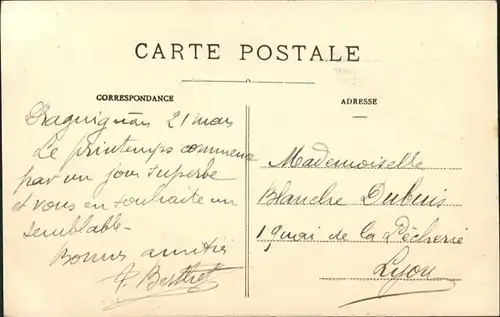 CARTE POSTALE
CORRESPONDANCE
Draguignan 21 mars
Le printemps commence
par un jour superbe
et vous en souhaite un
semblable-
Bonnes amitiés
Berthet
ADRESSE
Mademoiselle
Blanche Dubuis
1 quai de la Pêcherie
Lyon